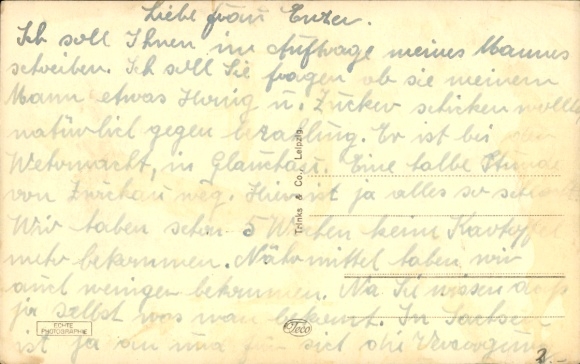 Liebe Frau Enzer.
Ich soll Ihnen im Auftrage meines Mannes
schreiben. Ich soll Sie fragen ob sie meinem
Mann etwas Honig u. Zucker schicken wollen
natürlich gegen bezahlung. Er ist bei der
Wehrmacht, in Glauchau. Eine halbe Stunde
von Zwickau weg. Hier ist ja alles so
Wir haben schon 5 Wochen keine Kartoffel
mehr bekommen. Nährmittel haben wir
auch weniger bekommen. Na Sie wissen
ja selbst was man bekommt. In Sachsen
ist ja
Trinks & Co., Leipzig.
ECHTE
PHOTOGRAPHIE
Teco
2.-